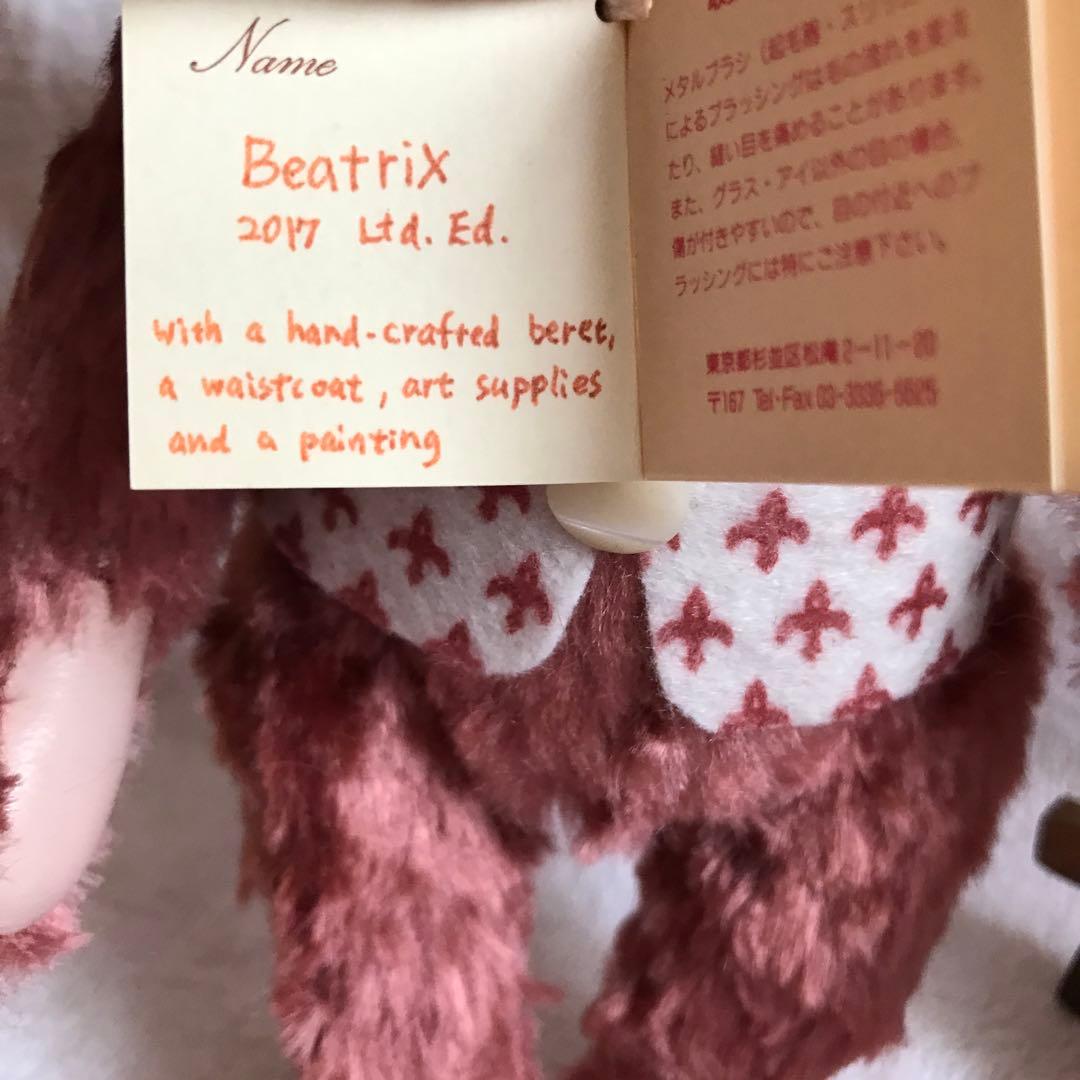 Name
Beatrix
2017 Ltd. Ed.
with a hand-crafted beret,
a waistcoat, art supplies
and a painting
メタルブラシ(起毛器・スリッカー
によるブラッシングは毛の流れを変え
たり、縫い目を痛めることがあります。
また、グラス・アイ以外の目の場合、
傷が付きやすいので、目の付近へのブ
ラッシングには特にご注意下さい。
東京都杉並区松庵2-11-20
〒167 Tel・Fax 03-3335-5525